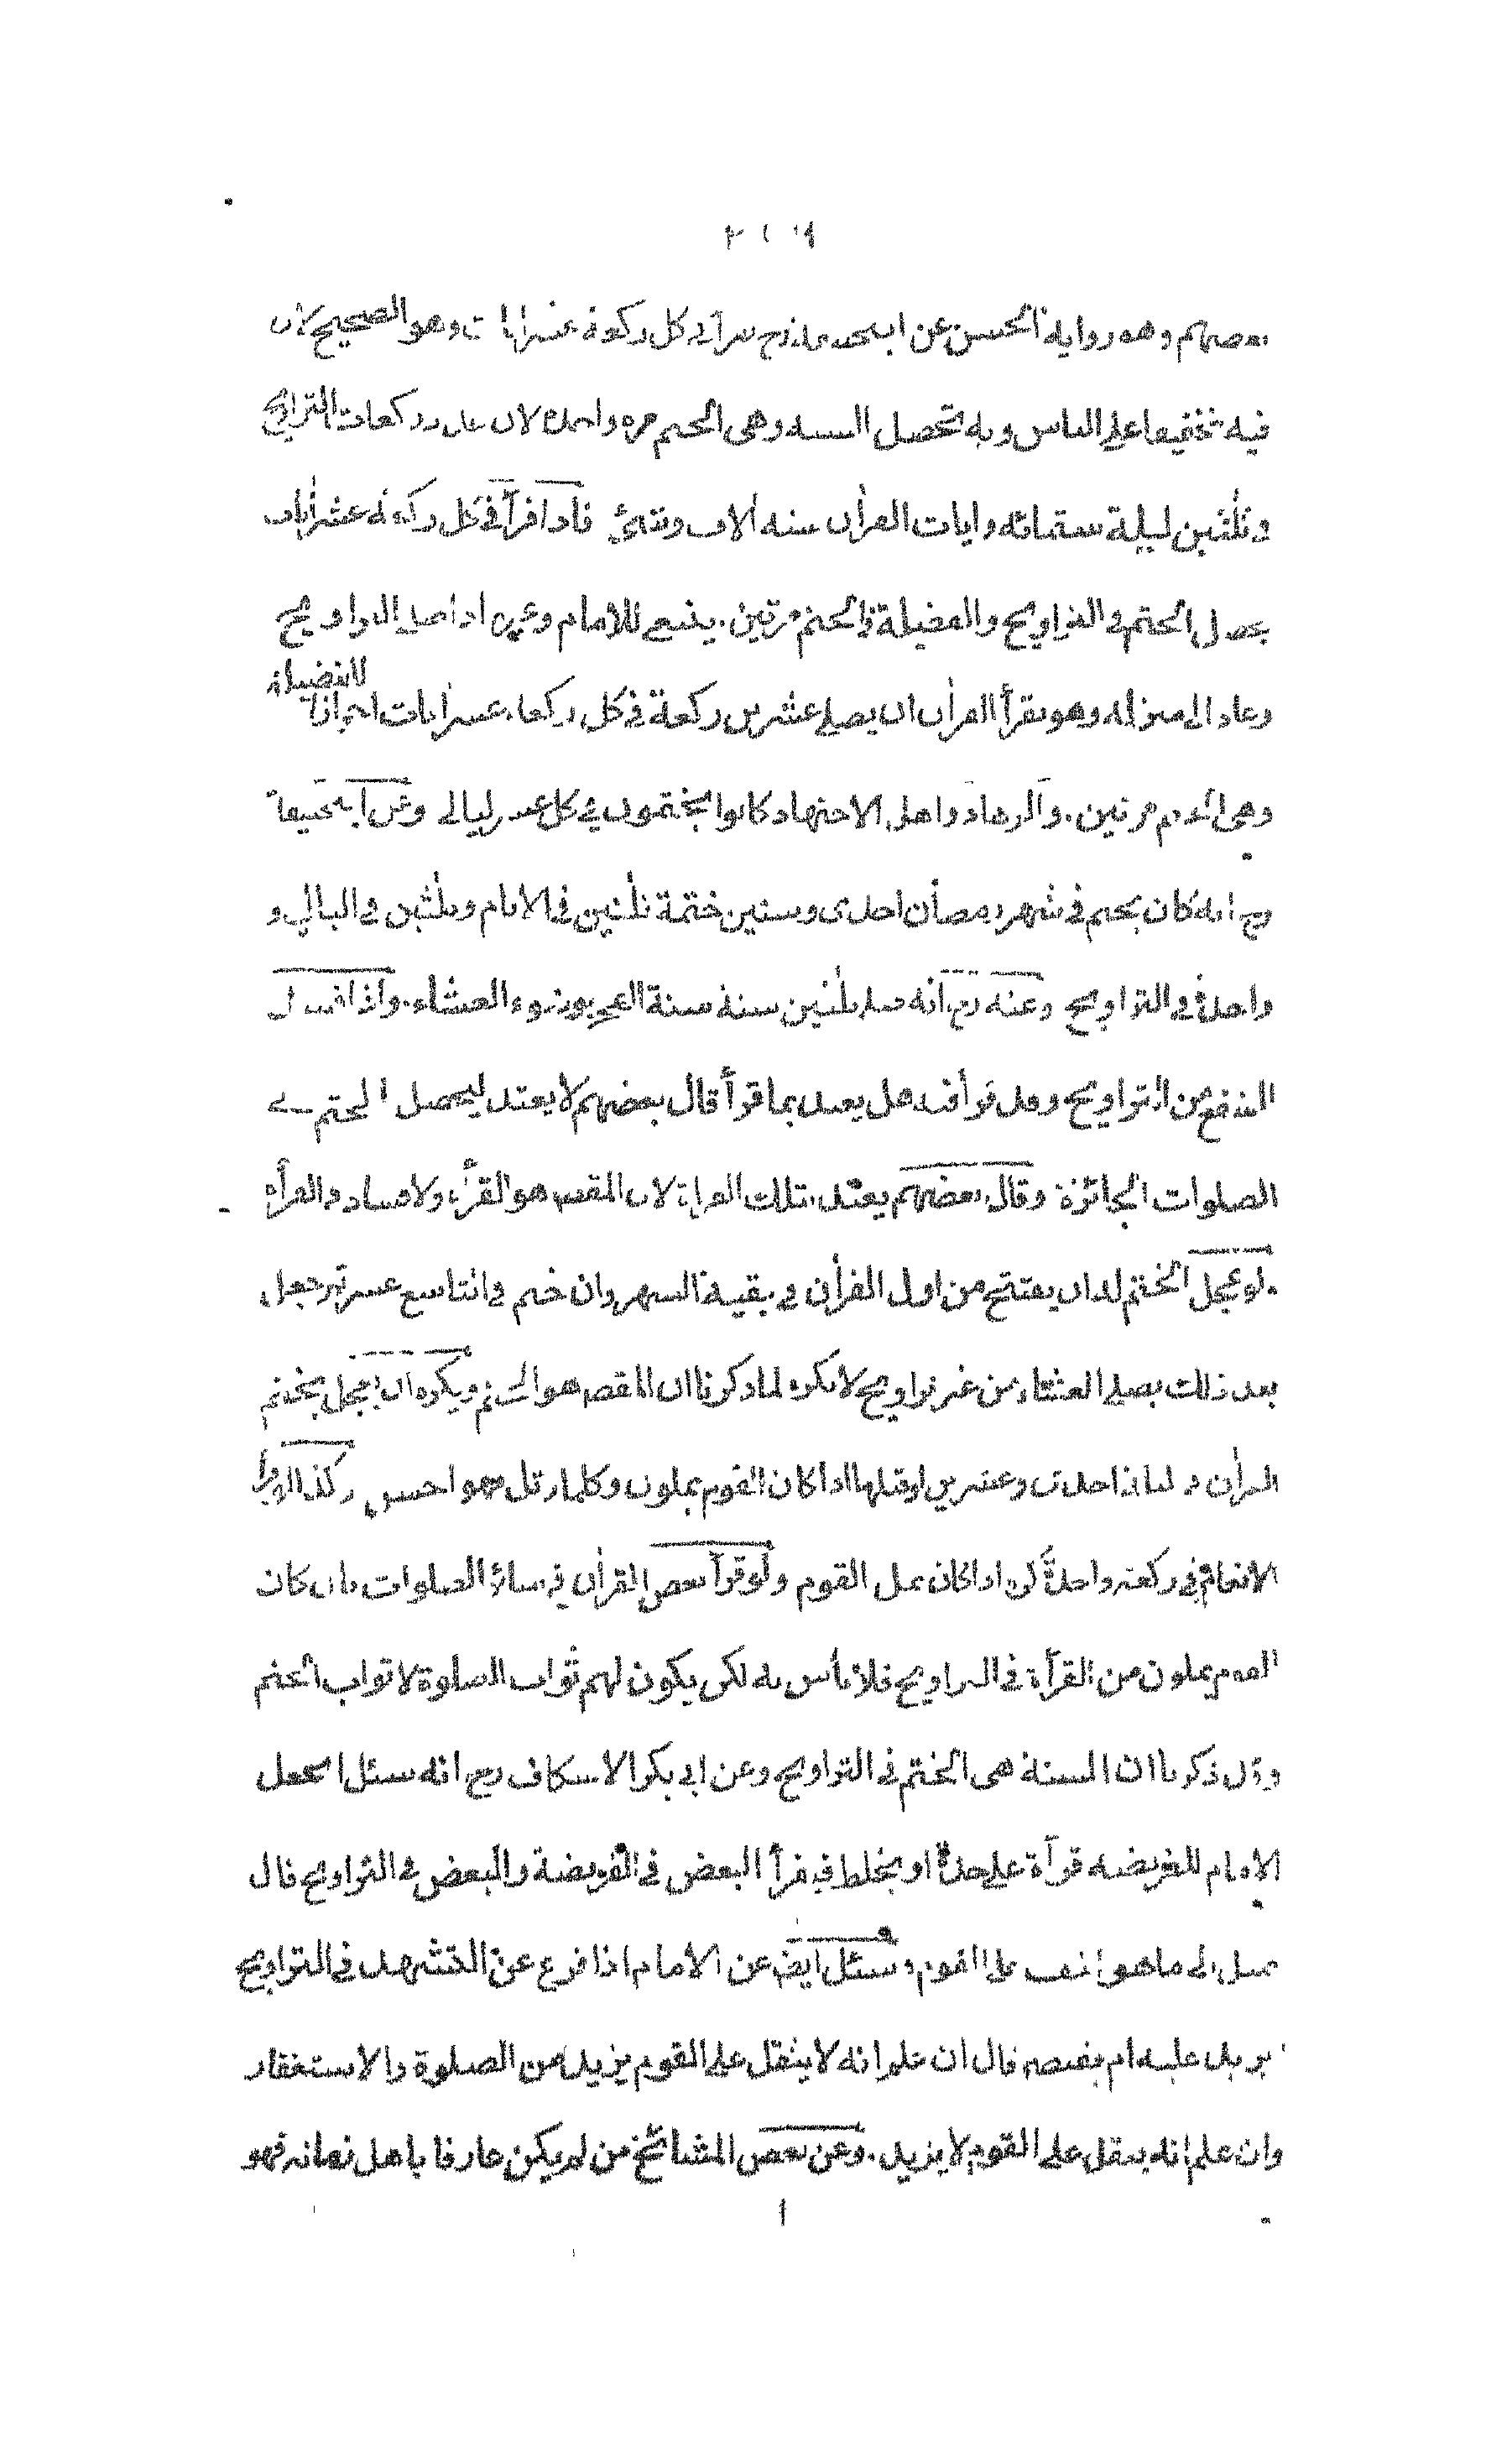 بعضهم وهو رواية الحسن عن ابيحنيفة رح يقرأ في كل ركعة عشر ايات وهو الصحيح لان
فيه تخفيفا على الناس وبه تحصل السنة وهى الختم مرة واحدة لان عدد ركعات التراويح
في ثلثين ليلة ستمائة وايات القرأن ستة ألاف وشئ فاذا قرأ في كل ركعة عشر أيات
يحصل الختم في التراويح والفضيلة في الختم مرتين. ينبغى للامام وغيره اذا صلى التراويح
وعاد الى منزله وهو يقرأ القرأن ان يصلى عشرين ركعة في كل ركعة عشر ايات احرازا للفضيلة
وهى الختم مرتين. والزهاد واهل الاجتهاد كانوا يختمون في كل عشر ليالى وعن ابيحنيفة
رح انه كان يختم في شهر رمضان احدى وستين ختمة ثلثين في الايام وثلثين في اليالي و
واحدة في التراويح وعنه رح انه صلى ثلثين سنة سنة الفجر بوضوء العشاء. واذا افسد
الشفع من التراويح وقد قرأ فيه هل يعتد بما قرأ قال بعضهم لا يعتد ليحصل الختم في
الصلوات الجائزة وقال بعضهم يعتد بتلك القرأة لان المقصد هو القرأة ولا فساد في القرأة
لو عجل الختم له ان يفتتح من اول القرأن في بقية الشهر وان ختم في التاسع عشر ثم جعل
بعد ذلك يصلى العشاء من غير تراويح لا يكره لما ذكرنا ان المقصد هو الختم ويكره ان يعجل بختم
القرأن في ليلة احدى وعشرين او قبلها اذا كان القوم يملون وكلما رتل فهو احسن وكذا لو قرأ
الانعام في ركعة واحدة كره اذا كان يمل القوم ولو قرأ بعض القرأن في سائر الصلوات بان كان
القوم يملون من القرأة في التراويح فلا بأس به لكن يكون لهم ثواب الصلوة لا ثواب الختم
وقد ذكرنا ان السنة هى الختم في التراويح وعن ابي بكر الاسكاف رح انه سئل ايجعل
الامام للفريضة قرأة على حدة او يخلط فيقرأ البعض في الفريضة والبعض في التراويح قال
يميل الى ما هو اخف على القوم وسئل ايضا عن الامام اذا فرغ عن التشهد في التراويح
يزيد عليه ام يقتصر قال ان علم انه لا يثقل على القوم يزيد من الصلوة والاستغفار
وان علم انه يثقل على القوم لا يزيد. وعن بعض المشائخ من لم يكن عارفا باهل زمانه فهو